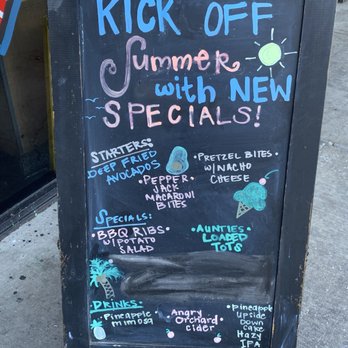 KICK OFF
Summer
with NEW
SPECIALS!
STARTERS:
DEEP FRIED
AVOCADOS
• PRETZEL BITES •
W/ NACHO
CHEESE
• PEPPER •
JACK
MACARONI
BITES
SPECIALS:
• BBQ RIBS •
W/ POTATO
SALAD
• AUNTIES •
LOADED
TOTS
DRINKS:
• Pineapple
mimosa
Angry
Orchard
cider
• pineapple
upside
Down
cake
Hazy
IPA